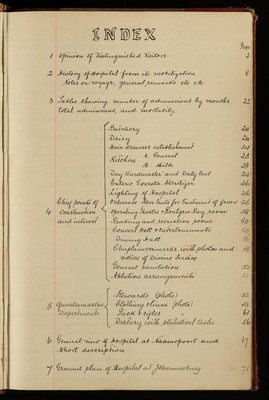 INDEX
Page
1 Opinion of Distinguished Visitors 2
2 History of Hospital from its mobilization 8
Notes on voyage, general remarks etc etc
3 Tables shewing number of admissions by months 22
total admissions, and mortality
Butchery 24
Dairy 24
Hair dressers establishment 24
Kitchen A. General 28
B. Milk 28
Day Wardmaster and Duty tent 26
Enteric Excreta Sterilizer 26
Lighting of Hospital 26
4 Chief points of construction and interest
Ordnance Store tents for treatment of fever 26
Operating Theatre & Rontgen Ray room 28
Reading and recreation room
Concert Hall & entertainments
Dining Hall
Chaplains remarks with photos and
notice of Divine Service
General Sanitation 52
Ablution arrangements 52
5 Quartermasters Departments
Stewards (photo) 53
Clothing stores (photo) 53
Pack & rifles " 61
Dietary with statistical tables 56
6 General view of Hospital at Naauwpoort and 67
short description
7 Ground plan of Hospital at Johannesburg 71